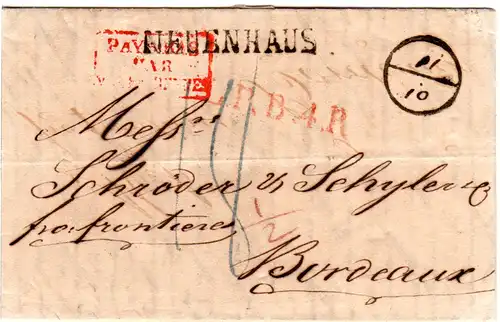 NEUENHAUS
PAYS
PAR
11
10
L.P.B.4.R
Messrs
Schröder & Schyler & Co
fro. frontiere
1/2
Bordeaux